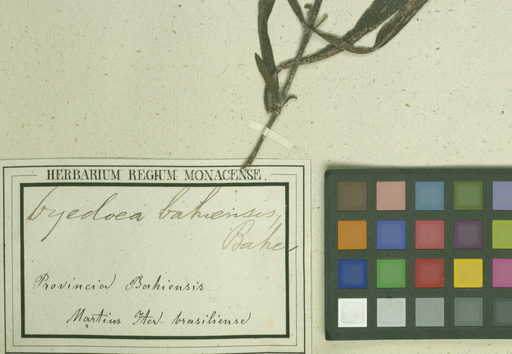 HERBARIUM REGIUM MONACENSE.
bahiensis,
Baker
Provincia Bahiensis.
Martius Iter. brasiliense